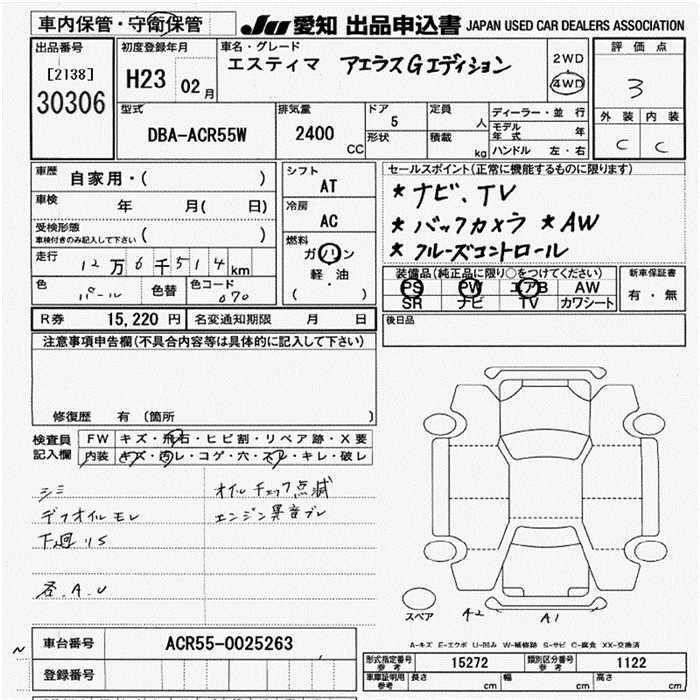 車内保管・守衛保管
JU 愛知 出品申込書 JAPAN USED CAR DEALERS ASSOCIATION
出品番号
[2138]
30306
初度登録年月
H23 02月
車名・グレード
エスティマ アエラスGエディション
2WD
4WD
評価点
3
外装 内装
C C
型式
DBA-ACR55W
排気量
2400 CC
ドア
5
形状
定員
人
積載
kg
ディーラー・並行
モデル年式 年
ハンドル 左・右
車歴
自家用・( )
車検
年 月( 日)
受検形態
車検付きのみ記入して下さい ( )
走行
12万6千514km
色
パール
色替
色コード
070
シフト
AT
冷房
AC
燃料
ガソリン
軽・油
( )
セールスポイント(正常に機能するものに限ります)
* ナビ、TV
* バックカメラ * AW
* クルーズコントロール
装備品(純正品に限り○をつけてください)
PS PW エアB AW
SR ナビ TV カワシート
新車保証書
有・無
後日品
R券 15,220円
名変通知期限 月 日
注意事項申告欄(不具合内容等は具体的に記入して下さい)
修復歴 有 (箇所 )
検査員記入欄
FW キズ・飛石・ヒビ割・リペア跡・X要
内装 キズ・汚レ・コゲ・穴・スレ・キレ・破レ
シミ
デフオイルモレ
下廻りS
各.A.U
オイルチェック点滅
エンジン異音ブレ
スペア
A2
A1
A-キズ E-エクボ U-凹み W-補修跡 S-サビ C-腐食 XX-交換済
車台番号 ACR55-0025263
登録番号
型式指定番号 参考 15272
類別区分番号 参考 1122
車庫証明用 参考 長さ cm 幅 cm 高さ cm